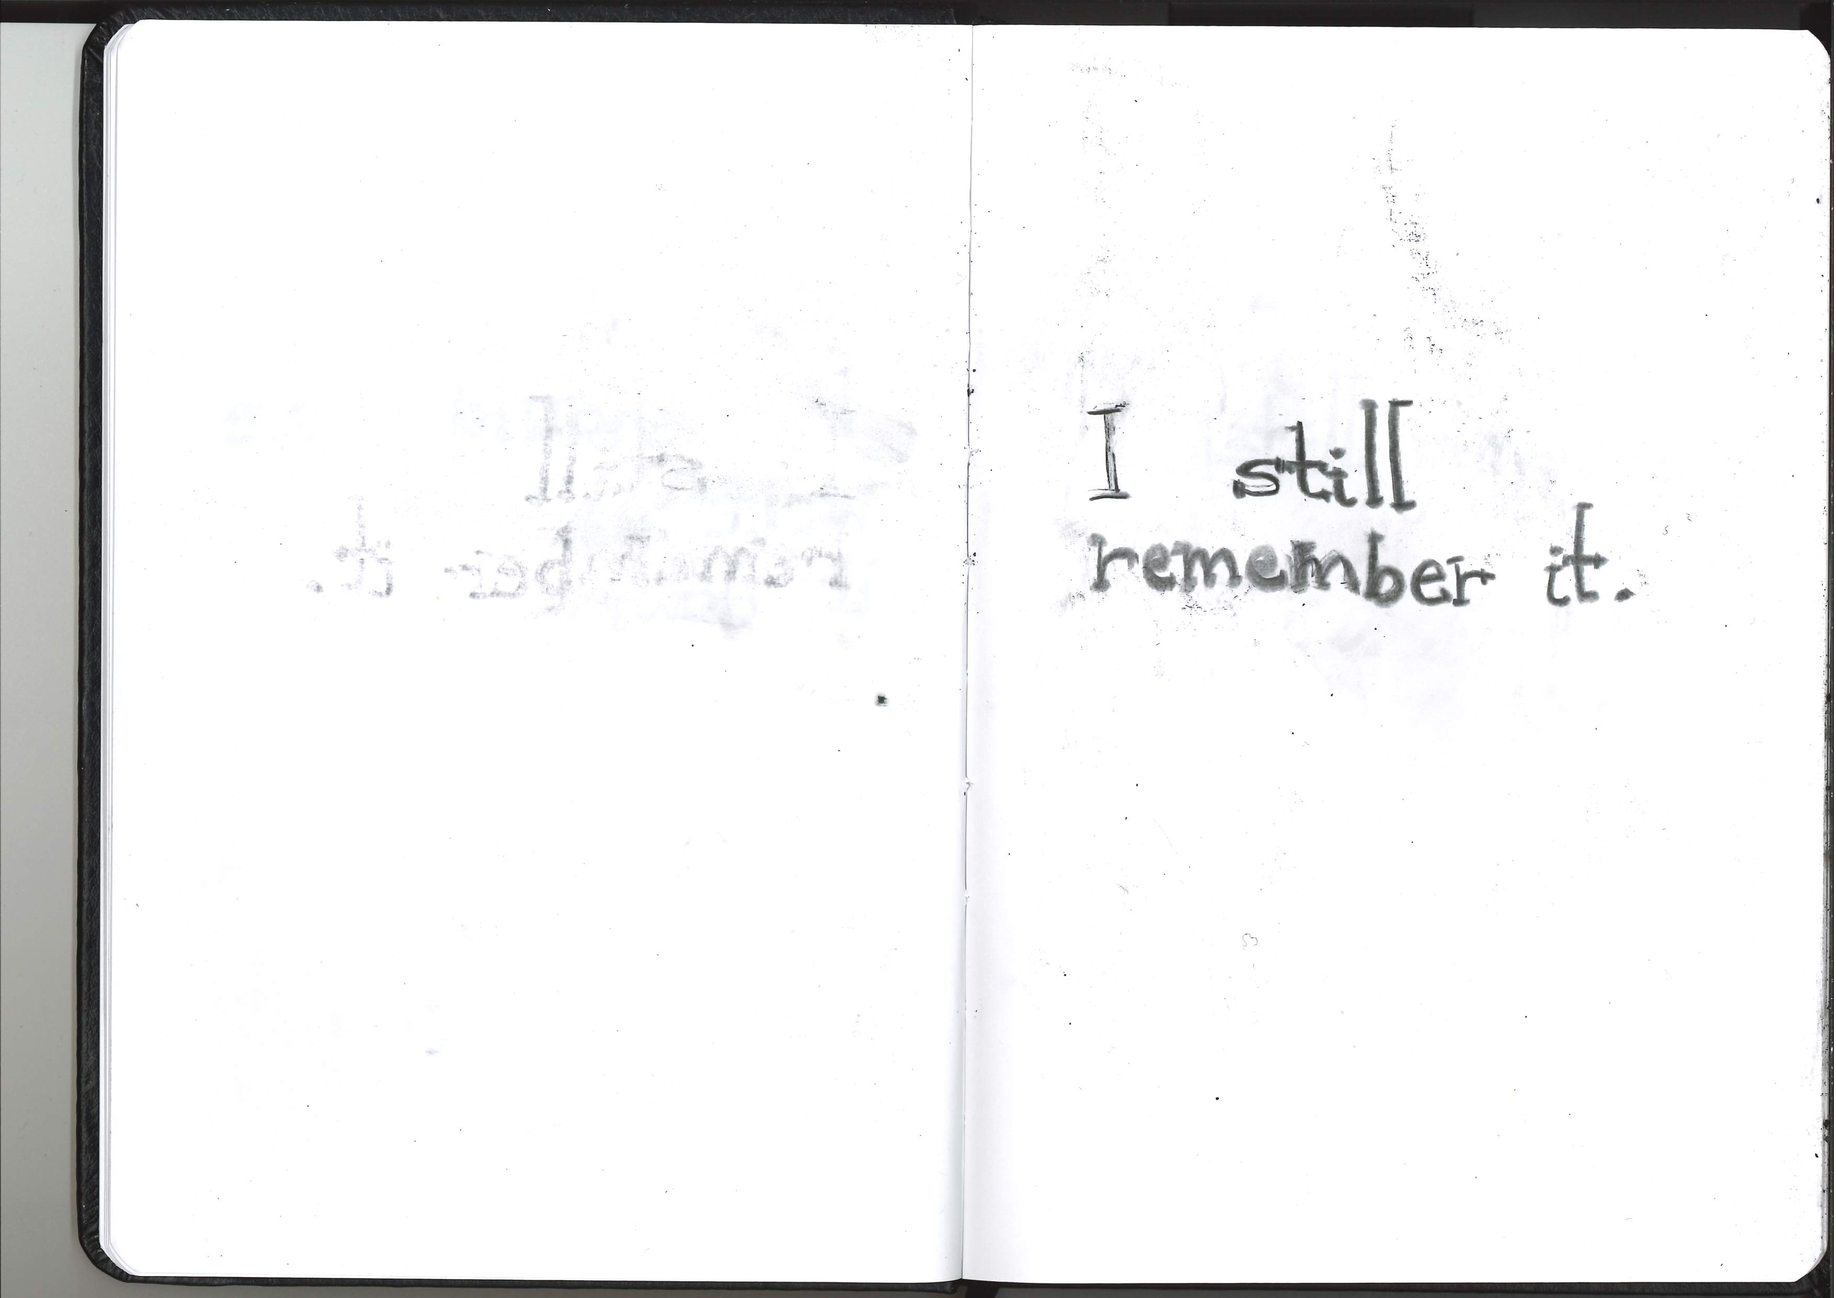 I still
remember it.